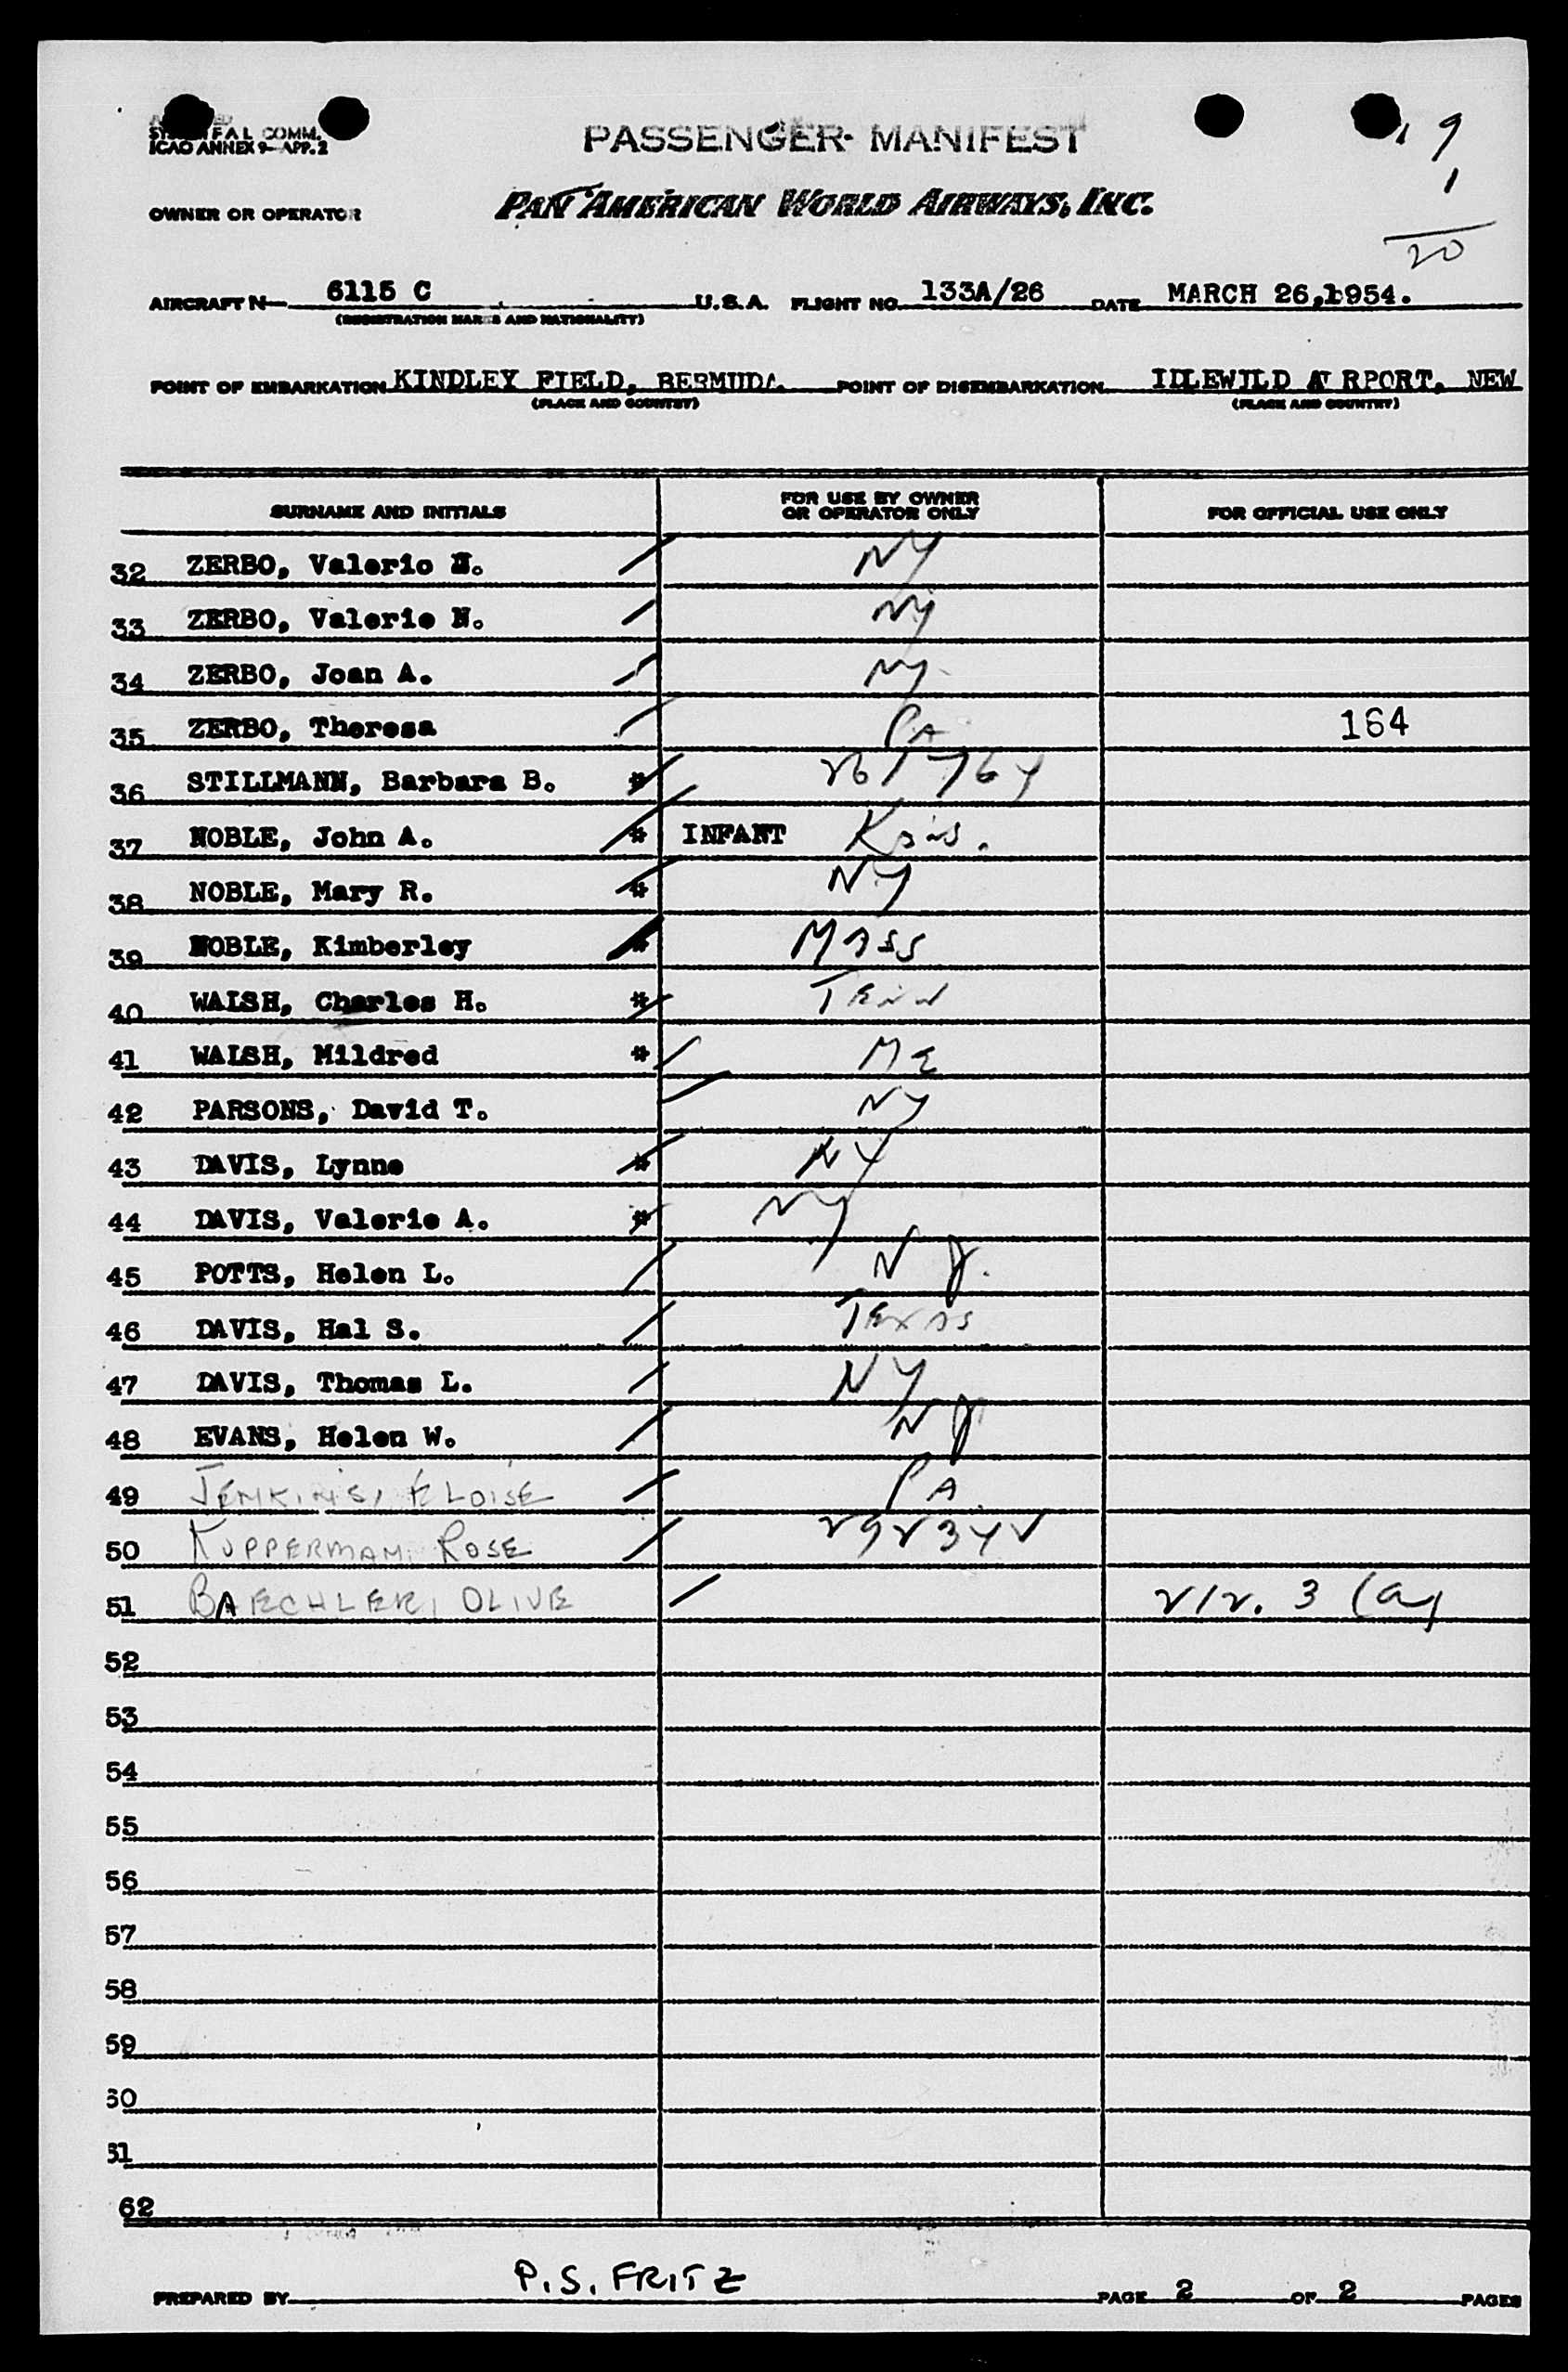 FAL COMM.
ICAO ANNEX 9- APP. 2
PASSENGER MANIFEST
9
1
20
OWNER OR OPERATOR PAN AMERICAN WORLD AIRWAYS, INC.
AIRCRAFT N 6115 C U.S.A. FLIGHT NO. 133A/26 DATE MARCH 26,1954.
(REGISTRATION MARKS AND NATIONALITY)
POINT OF EMBARKATION KINDLEY FIELD, BERMUDA POINT OF DISEMBARKATION IDLEWILD A RPORT, NEW
(PLACE AND COUNTRY) (PLACE AND COUNTRY)
SURNAME AND INITIALS FOR USE BY OWNER OR OPERATOR ONLY FOR OFFICIAL USE ONLY
32 ZERBO, Valerio / NY
33 ZERBO, Valerie N. / NY
34 ZERBO, Joan A. / NY
35 ZERBO, Theresa / PA 164
36 STILLMANN, Barbara B. * / 261764
37 NOBLE, John A. * / INFANT
38 NOBLE, Mary R. * / NY
39 NOBLE, Kimberley * / MASS
40 WALSH, Charles H. * / TENN
41 WALSH, Mildred * / ME
42 PARSONS, David T. / NY
43 DAVIS, Lynne * / NY
44 DAVIS, Valerie A. * / NY
45 POTTS, Helen L. / NJ.
46 DAVIS, Hal S. / TEXAS
47 DAVIS, Thomas L. / NY
48 EVANS, Helen W. / NJ
49 JENKINS, ELOISE / PA
50 KUPPERMAN, ROSE /
51 BAECHLER, OLIVE / 212. 3 (a)
52
53
54
55
56
57
58
59
60
61
62
PREPARED BY P.S. FRITZ PAGE 2 OF 2 PAGES